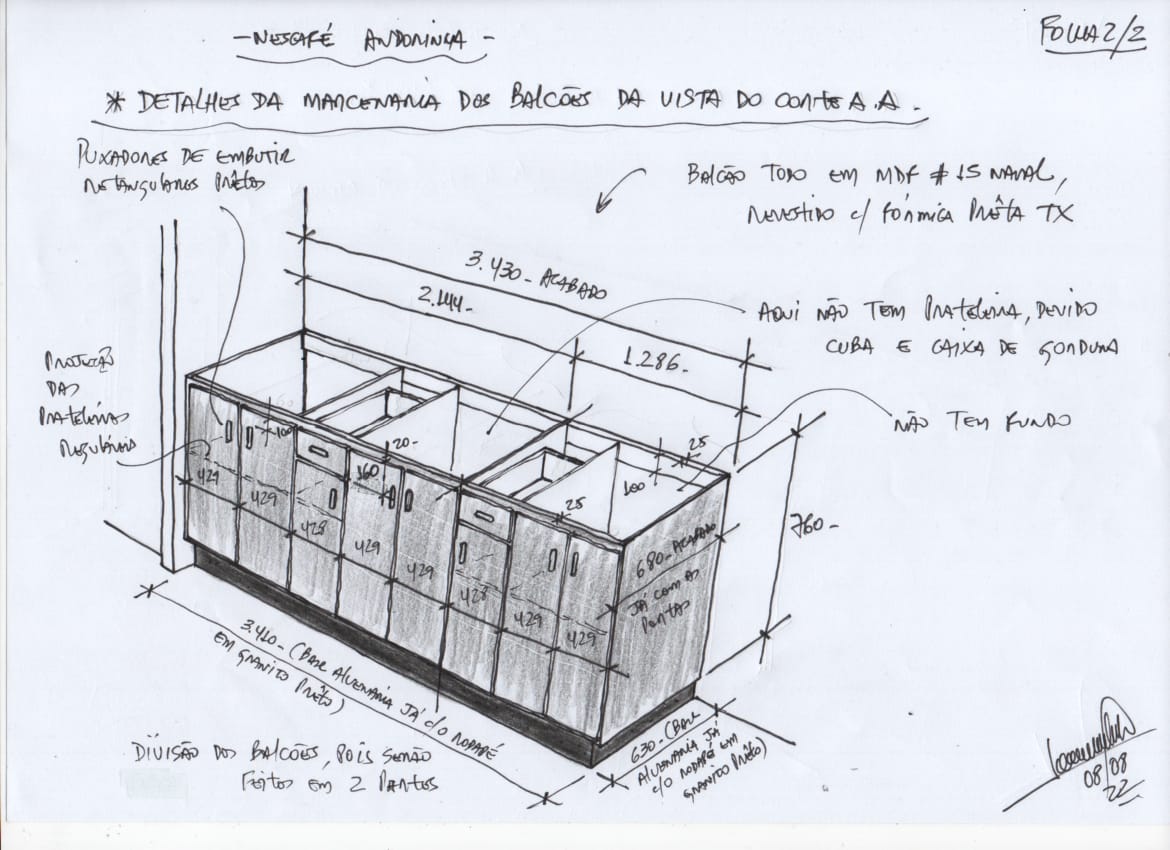 - NESCAFÉ ANDORINHA -
FOLHA 2/2
* DETALHES DA MARCENARIA DOS BALCÕES DA VISTA DO CORTE A.A.
PUXADORES DE EMBUTIR
RETANGULARES PRÊTOS
BALCÃO TODO EM MDF # 15 NAVAL,
REVESTIDO c/ FÓRMICA PRÊTA TX
3.430 - ACABADO
2.144 -
1.286 -
AQUI NÃO TEM PRATELEIRA, DEVIDO
CUBA E CAIXA DE GORDURA
NÃO TEM FUNDO
PROJEÇÃO
DAS
PRATELEIRAS
REGULÁVEIS
100
20 -
160
25
100
25
429
429
428
429
429
428
429
429
680 - ACABADO
JÁ COM AS
PORTAS
760 -
3.410 - (BASE ALVENARIA JÁ c/o RODAPÉ
EM GRANITO PRÊTO)
630 - (BASE
ALVENARIA JÁ
c/o RODAPÉ EM
GRANITO PRÊTO)
DIVISÃO DOS BALCÕES, POIS SERÃO
FEITOS EM 2 PARTES
08/08
22